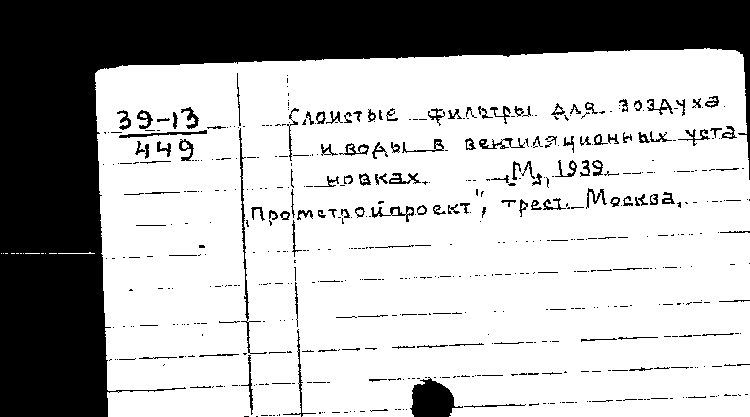 39-13
449
Слоистые фильтры для воздуха
и воды в вентиляционных уста-
новках. [М.], 1939.
„Промстройпроект", трест. Москва.